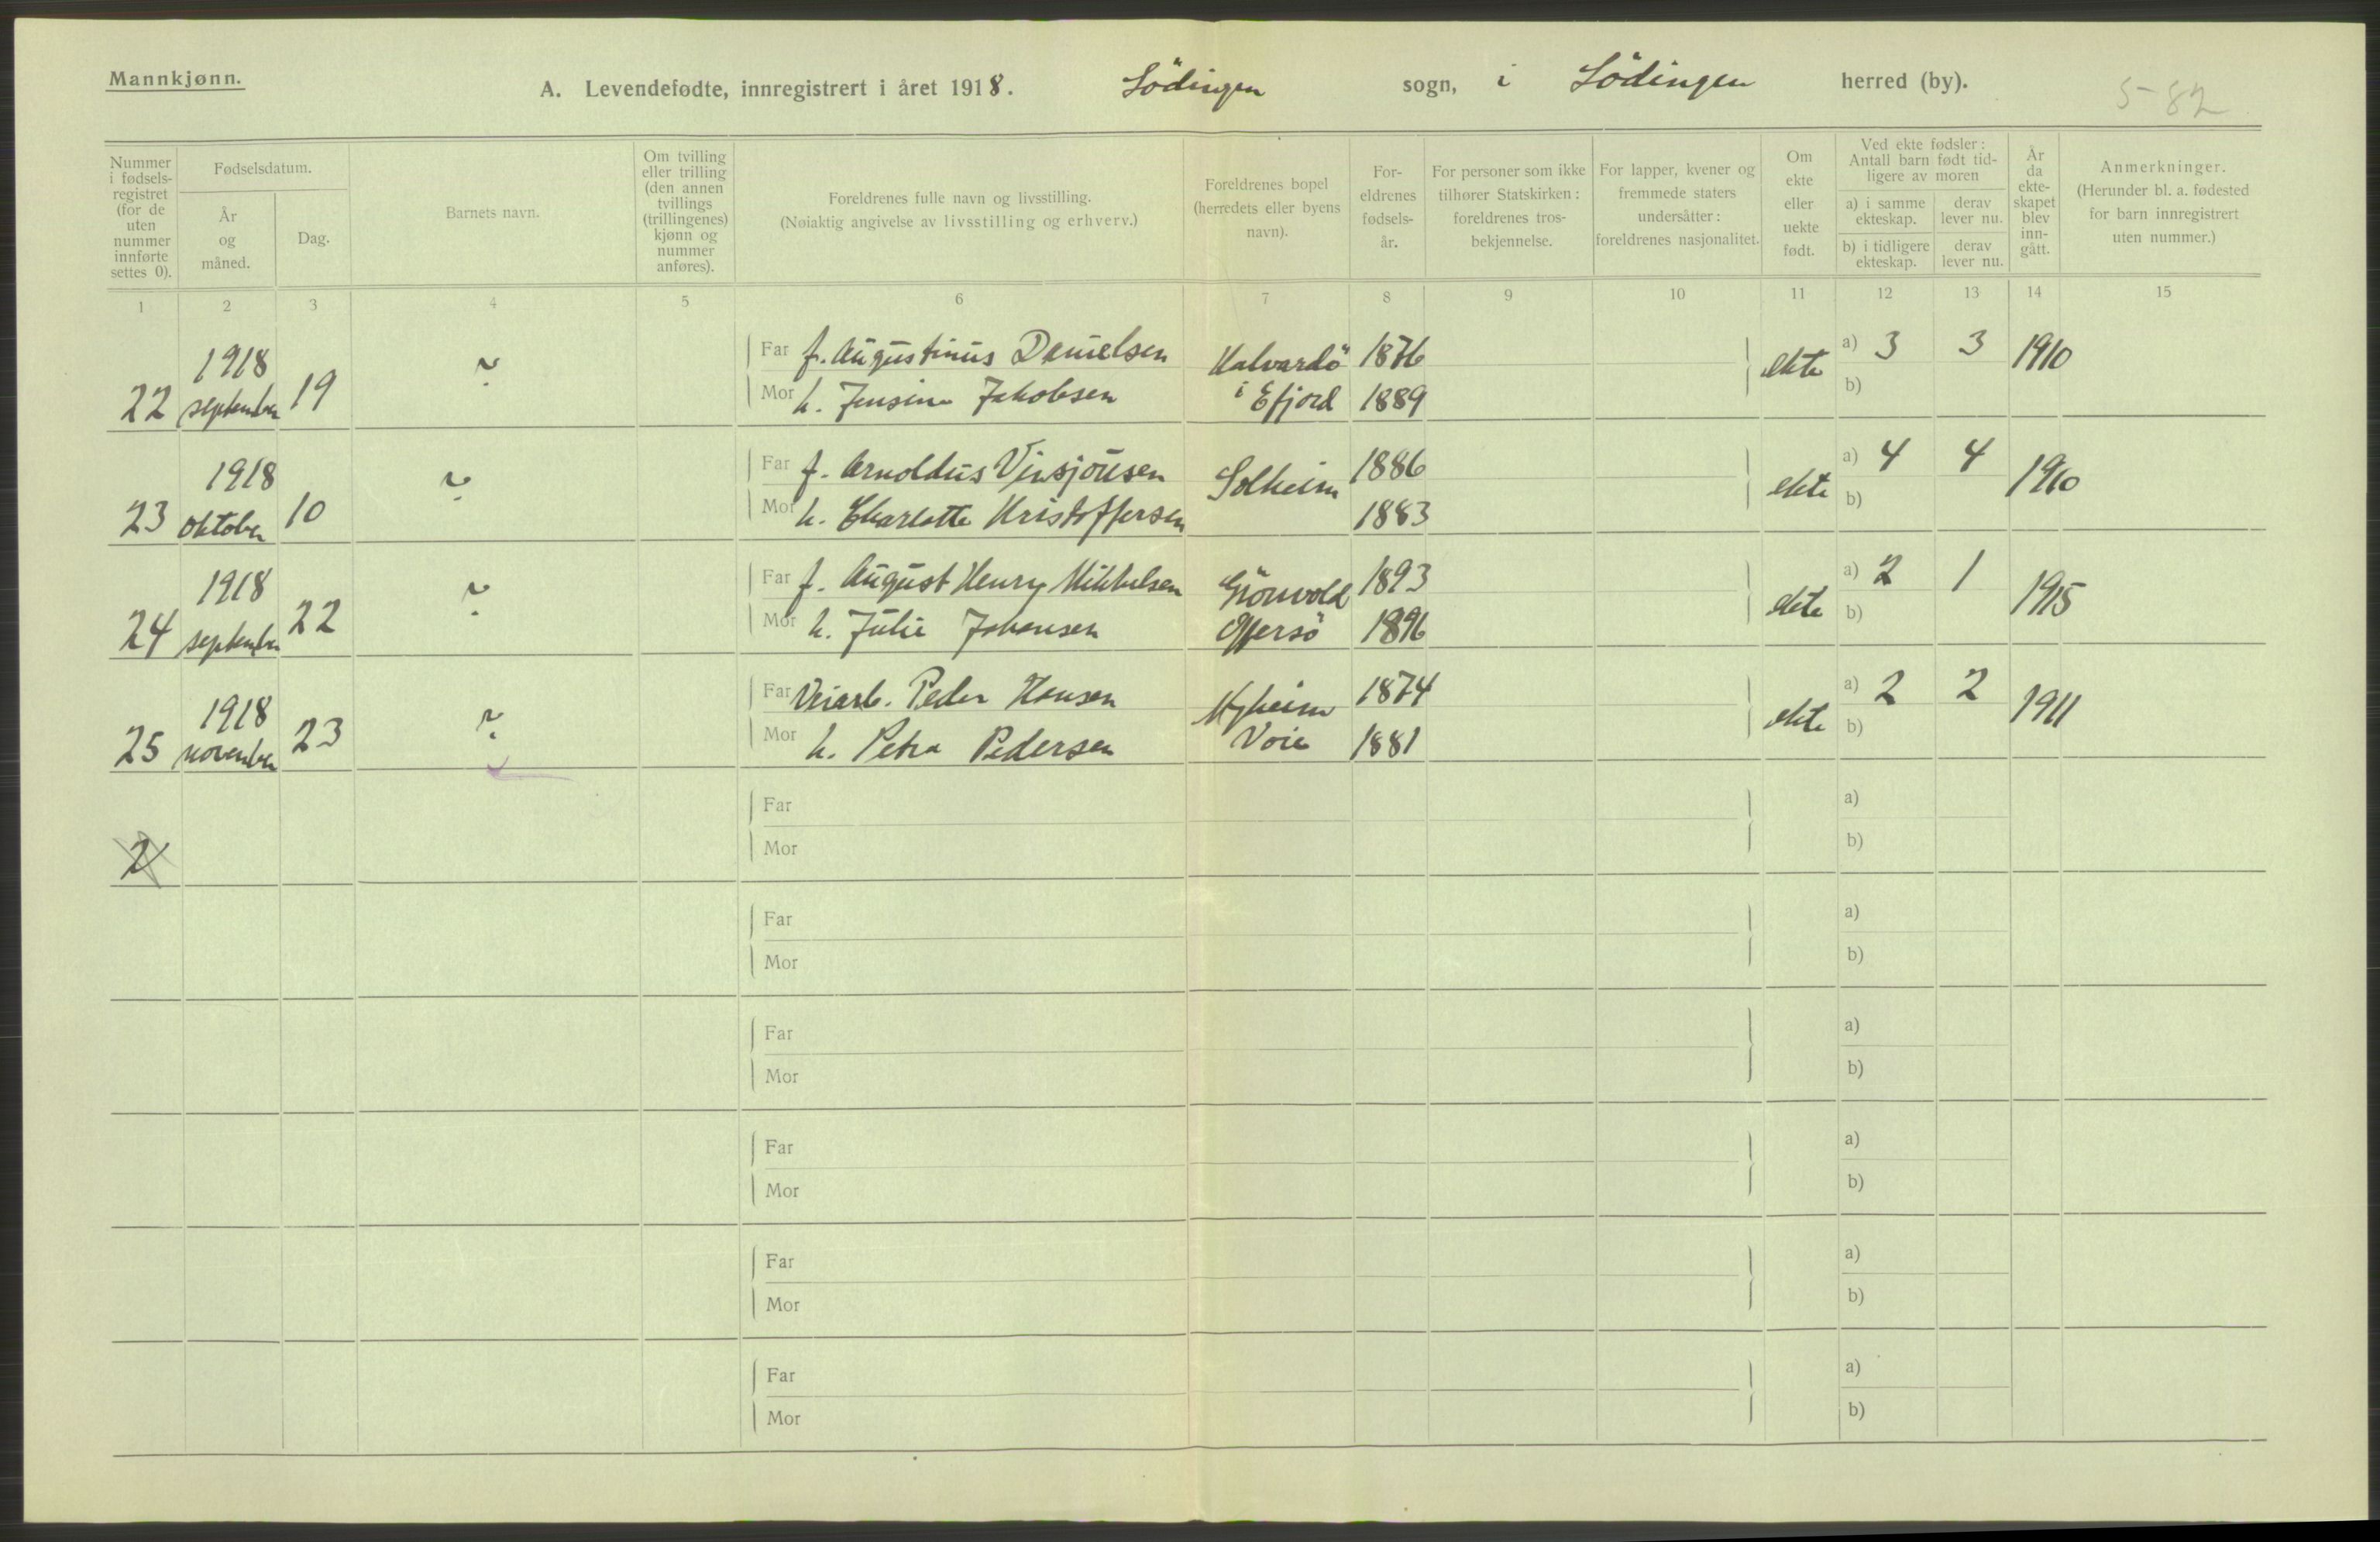 Mannkjønn.
A. Levendefødte, innregistrert i året 1918. Lödingen sogn, i Lödingen herred (by).
5-82
Nummer i fødsels-registret (for de uten nummer innførte settes 0).
Fødselsdatum.
År og måned.
Dag.
Barnets navn.
Om tvilling eller trilling (den annen tvillings (trillingenes) kjønn og nummer anføres).
Foreldrenes fulle navn og livsstilling.
(Nøiaktig angivelse av livsstilling og erhverv.)
Foreldrenes bopel (herredets eller byens navn).
For-eldrenes fødsels-år.
For personer som ikke tilhører Statskirken: foreldrenes tros-bekjennelse.
For lapper, kvener og fremmede staters undersåtter: foreldrenes nasjonalitet.
Om ekte eller uekte født.
Ved ekte fødsler: Antall barn født tid-ligere av moren
a) i samme ekteskap.
derav lever nu.
b) i tidligere ekteskap.
derav lever nu.
År da ekte-skapet blev inn-gått.
Anmerkninger.
(Herunder bl. a. fødested for barn innregistrert uten nummer.)
1 2 3 4 5 6 7 8 9 10 11 12 13 14 15
22 1918 september 19 ?
Far f. Augustinus Danielsen Halvardö 1876 ekte a) 3 3 1910
Mor h. Jensine Jakobsen i Efjord 1889 b)
23 1918 oktober 10 ?
Far f. Arnoldus Solheim 1886 ekte a) 4 4 1910
Mor h. Charlotte Kristoffersen 1883 b)
24 1918 september 22 ?
Far f. August Henry Mikkelsen Grönvold 1893 ekte a) 2 1 1915
Mor h. Julie Johansen Offersö 1896 b)
25 1918 november 23 ?
Far Veiarb. Peder Hansen Myheim 1874 ekte a) 2 2 1911
Mor h. Petra Pedersen Voie 1881 b)
2
Far a)
Mor b)
Far a)
Mor b)
Far a)
Mor b)
Far a)
Mor b)
Far a)
Mor b)
Far a)
Mor b)